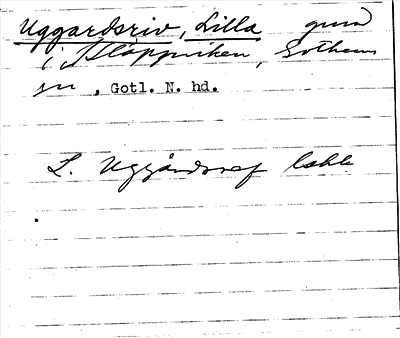 Uggardsriv, Lilla grund
i Kläppviken, Gothem
sn, Gotl. N. hd.
L. Uggårdsref lokl